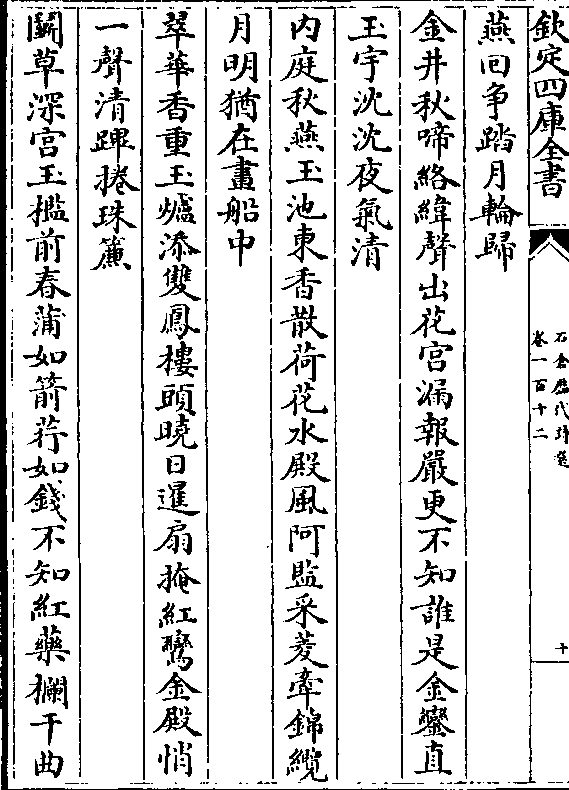 欽定四庫全書
石倉歷代詩選
卷一百十二
十
燕回争踏月輪歸
金井秋啼絡緯聲出花宫漏報嚴更不知誰是金鑾直
玉宇沈沈夜氣清
内庭秋燕玉池東香散荷花水殿風阿監采菱牽錦纜
月明猶在畫船中
翠華香重玉爐添雙鳳樓頭曉日暹扇掩紅鸞金殿悄
一聲清蹕捲珠簾
鬭草深宫玉檻前春蒲如箭荇如錢不知紅藥欄干曲